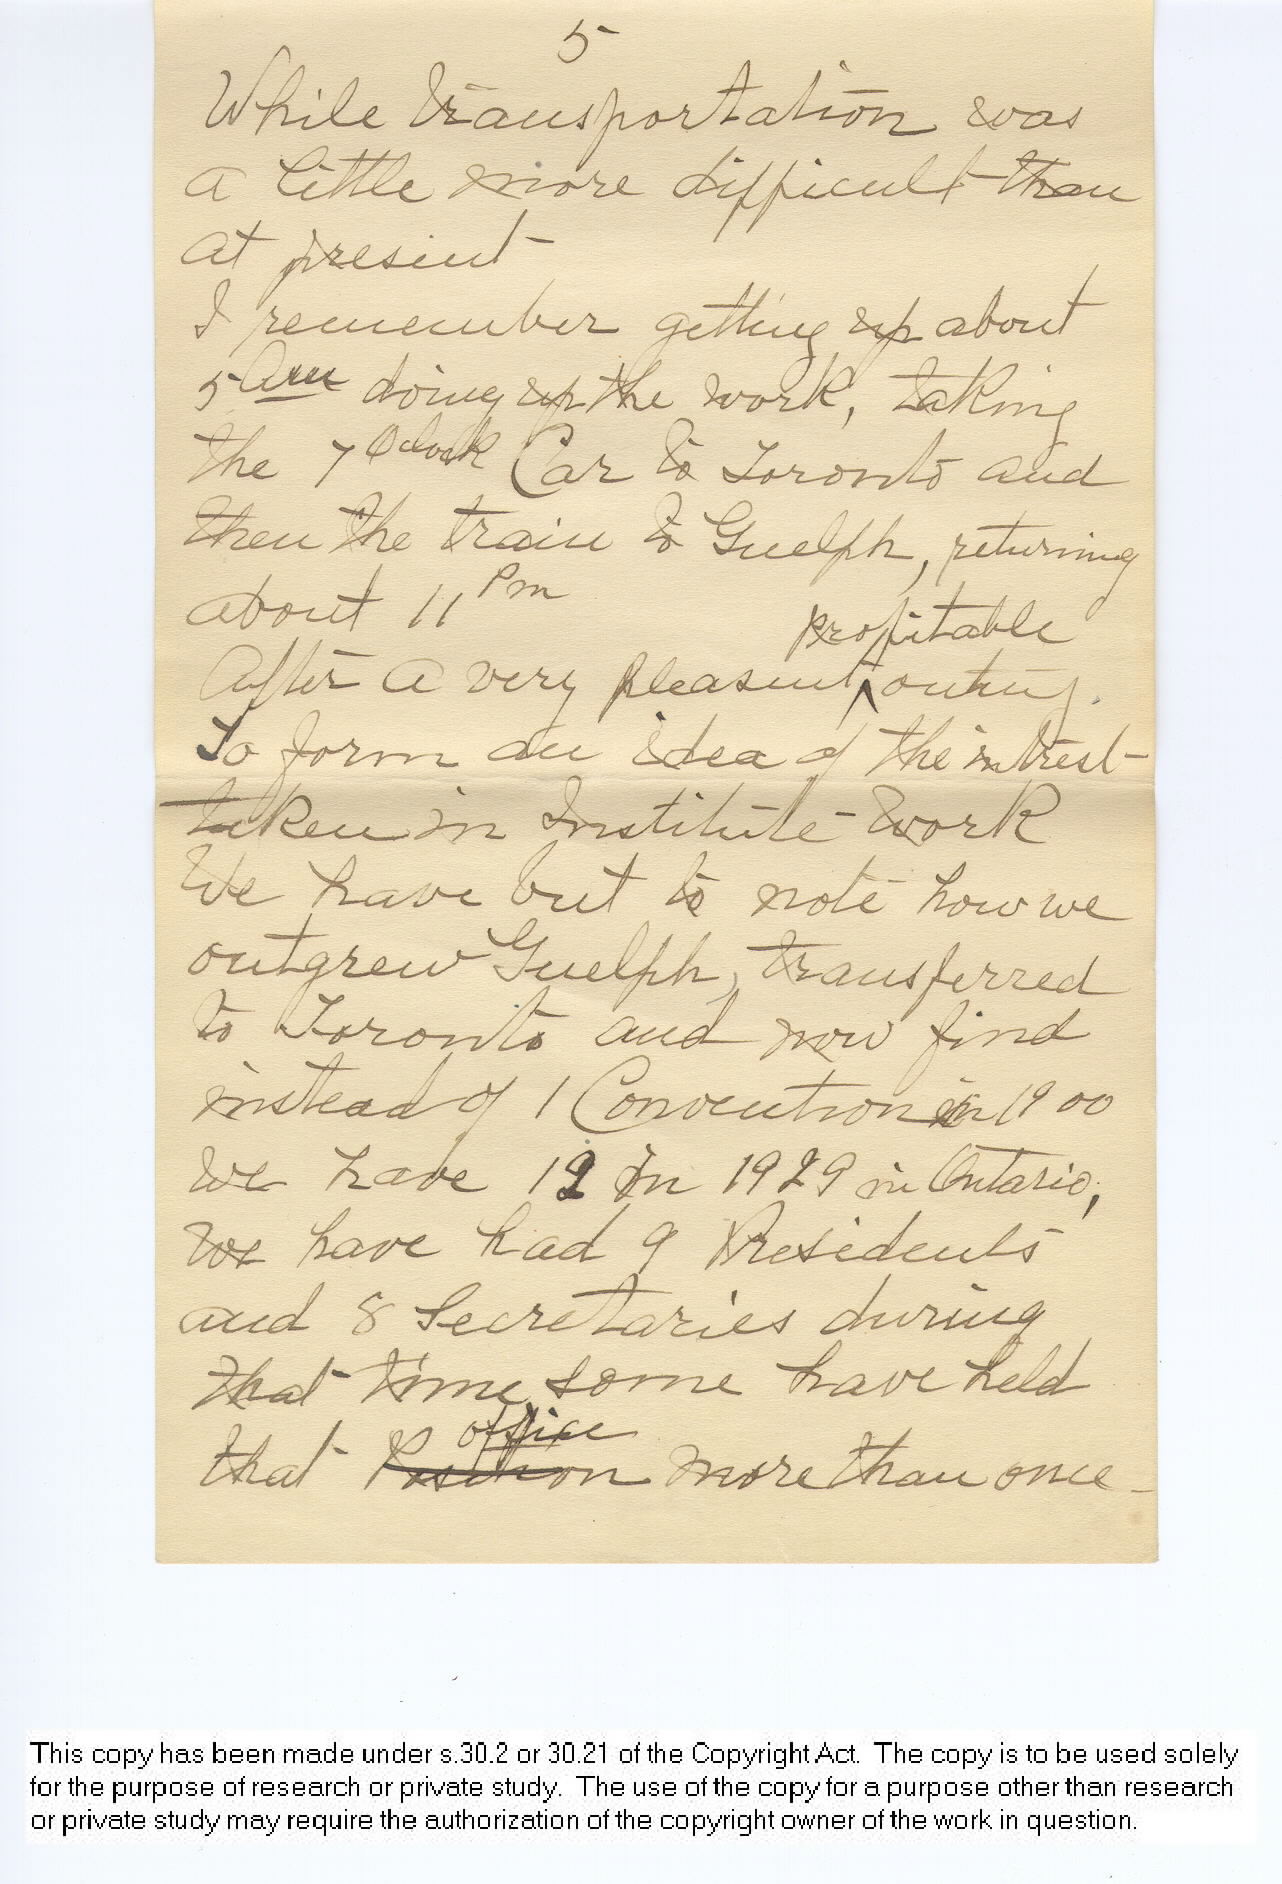 5
While transportation was
a little more difficult than
at present
I remember getting up about
5 am doing up the work, taking
the 7 Oclock Car to Toronto and
then the train to Guelph, returning
about 11 Pm
profitable
After a very pleasent ^ outing.
To form an idea of the intrest
taken in Institute work
We have but to note how we
outgrew Guelph, transferred
to Toronto and now find
instead of 1 Convention in 1900
we have 12 in 1929 in Ontario,
We have had 9 Presidents
and 8 Secretaries during
that time some have held
office
that Position more than once
This copy has been made under s.30.2 or 30.21 of the Copyright Act. The copy is to be used solely
for the purpose of research or private study. The use of the copy for a purpose other than research
or private study may require the authorization of the copyright owner of the work in question.